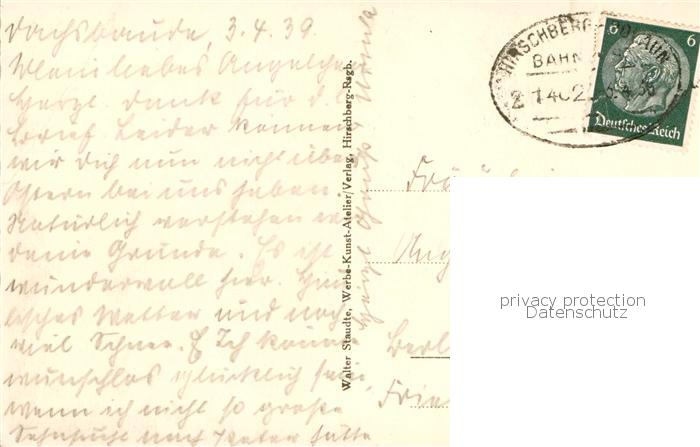 Dachsbaude, 3.4.39.
Mein liebes Angelchen
Herzl. Dank für d.
Brief. Leider können
wir Dich nun nicht über
Ostern bei uns haben.
Natürlich verstehen w
deine Gründe. Es ist
wundervoll hier. Herr
lisches Wetter und noch
viel Schnee. Ich könnte
wunschlos glücklich sein,
wenn ich nicht so große
Sehnsucht nach Peter hätte
Herzl. Ursula
Walter Staudte, Werbe-Kunst-Atelier/Verlag, Hirschberg-Rsgb.
HIRSCHBERG
BAHN
6 6
Deutsches Reich
Ang
Berl
Frie
privacy protection
Datenschutz